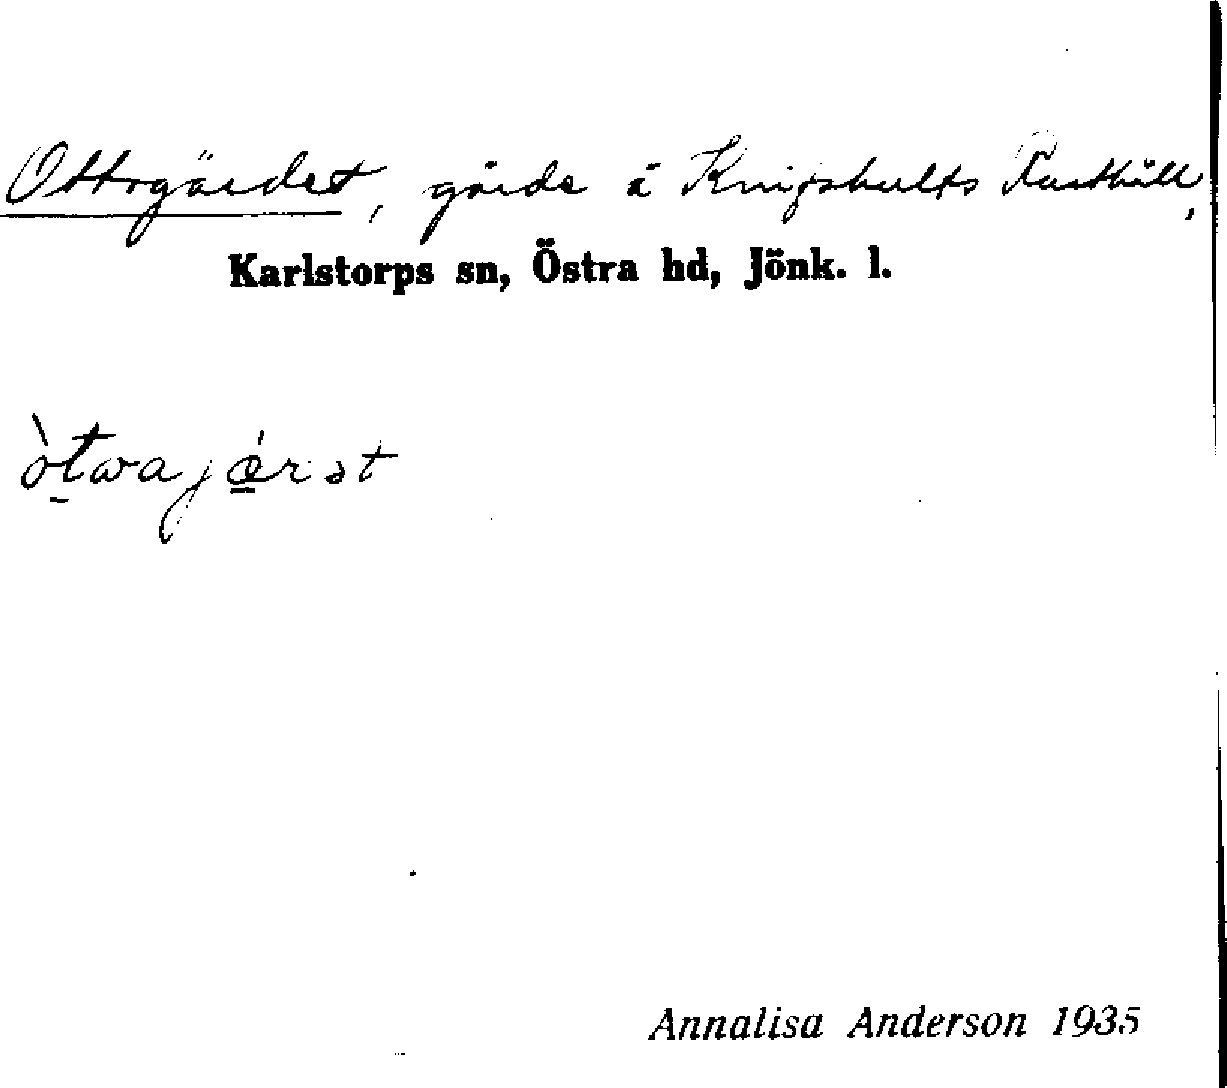 Ottrgärdet, gärde å Knipshults Kusthåll,
Karlstorps sn, Östra hd, Jönk. l.
òtwajǽrət
Annalisa Anderson 1935